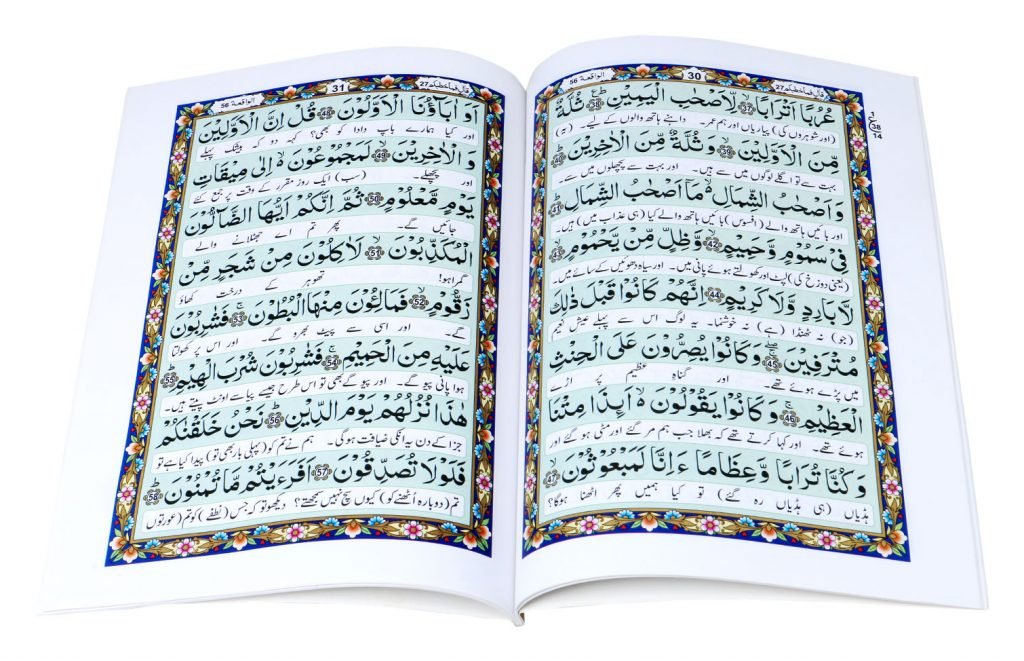 الواقعة 56
30
قال فما خطبكم 27
عُرُبًا اَتْرَابًا ﴿37﴾ لِّاَصْحٰبِ الْيَمِيْنِ ﴿38﴾ ثُلَّةٌ
(اور شوہروں کی) پیاریاں اور ہم عمر۔ داہنے ہاتھ والوں کے لیے۔ (یہ)
مِّنَ الْاَوَّلِيْنَ ﴿39﴾ وَ ثُلَّةٌ مِّنَ الْاٰخِرِيْنَ ﴿40﴾
بہت سے تو اگلے لوگوں میں سے ہیں۔ اور بہت سے پچھلوں میں سے۔
وَ اَصْحٰبُ الشِّمَالِ مَا اَصْحٰبُ الشِّمَالِ ﴿41﴾
اور بائیں ہاتھ والے (افسوس) بائیں ہاتھ والے کیا (ہی عذاب میں) ہیں۔
فِيْ سَمُوْمٍ وَّ حَمِيْمٍ ﴿42﴾ وَّ ظِلٍّ مِّنْ يَّحْمُوْمٍ ﴿43﴾
(یعنی دوزخ کی) لپٹ اور کھولتے ہوئے پانی میں۔ اور سیاہ دھوئیں کے سائے میں۔
لَّا بَارِدٍ وَّ لَا كَرِيْمٍ ﴿44﴾ اِنَّهُمْ كَانُوْا قَبْلَ ذٰلِكَ
(جو) نہ ٹھنڈا (ہے) نہ خوشنما۔ یہ لوگ اس سے پہلے عیش نعیم
مُتْرَفِيْنَ ﴿45﴾ وَ كَانُوْا يُصِرُّوْنَ عَلَى الْحِنْثِ
میں پڑے ہوئے تھے۔ اور گناہ عظیم پر اڑے
الْعَظِيْمِ ﴿46﴾ وَ كَانُوْا يَقُوْلُوْنَ اَئِذَا مِتْنَا
ہوئے تھے۔ اور کہا کرتے تھے کہ بھلا جب ہم مر گئے اور مٹی ہو گئے اور
وَ كُنَّا تُرَابًا وَّ عِظَامًا ءَاِنَّا لَمَبْعُوْثُوْنَ ﴿47﴾
ہڈیاں (ہی ہڈیاں رہ گئے) تو کیا ہمیں پھر اٹھنا ہوگا؟
38
14
الواقعة 56
31
قال فما خطبكم 27
اَوَ اٰبَآؤُنَا الْاَوَّلُوْنَ ﴿48﴾ قُلْ اِنَّ الْاَوَّلِيْنَ
اور کیا ہمارے باپ دادا کو بھی؟ کہہ دو کہ بیشک پہلے
وَ الْاٰخِرِيْنَ ﴿49﴾ لَمَجْمُوْعُوْنَ اِلٰى مِيْقَاتِ
اور پچھلے۔ (سب) ایک روز مقرر کے وقت پر جمع کئے
يَوْمٍ مَّعْلُوْمٍ ﴿50﴾ ثُمَّ اِنَّكُمْ اَيُّهَا الضَّآلُّوْنَ
جائیں گے۔ پھر تم اے جھٹلانے والے
الْمُكَذِّبُوْنَ ﴿51﴾ لَاٰكِلُوْنَ مِنْ شَجَرٍ مِّنْ
گمراہو! تھوہر کے درخت کھاؤ
زَقُّوْمٍ ﴿52﴾ فَمَالِـُٔوْنَ مِنْهَا الْبُطُوْنَ ﴿53﴾ فَشٰرِبُوْنَ
گے۔ اور اسی سے پیٹ بھرو گے۔ اور اس پر کھولتا
عَلَيْهِ مِنَ الْحَمِيْمِ ﴿54﴾ فَشٰرِبُوْنَ شُرْبَ الْهِيْمِ ﴿55﴾
ہوا پانی پیو گے۔ اور پیو گے بھی تو اس طرح جیسے پیاسے اونٹ پیتے ہیں۔
هٰذَا نُزُلُهُمْ يَوْمَ الدِّيْنِ ﴿56﴾ نَحْنُ خَلَقْنٰكُمْ
جزا کے دن یہ انکی ضیافت ہوگی۔ ہم نے تم کو (پہلی بار بھی تو) پیدا کیا ہے تو
فَلَوْ لَا تُصَدِّقُوْنَ ﴿57﴾ اَفَرَءَيْتُمْ مَّا تُمْنُوْنَ ﴿58﴾
تم (دوبارہ اُٹھنے کو) کیوں سچ نہیں سمجھتے؟ دیکھو تو کہ جس (نطفے) کو تم (عورتوں